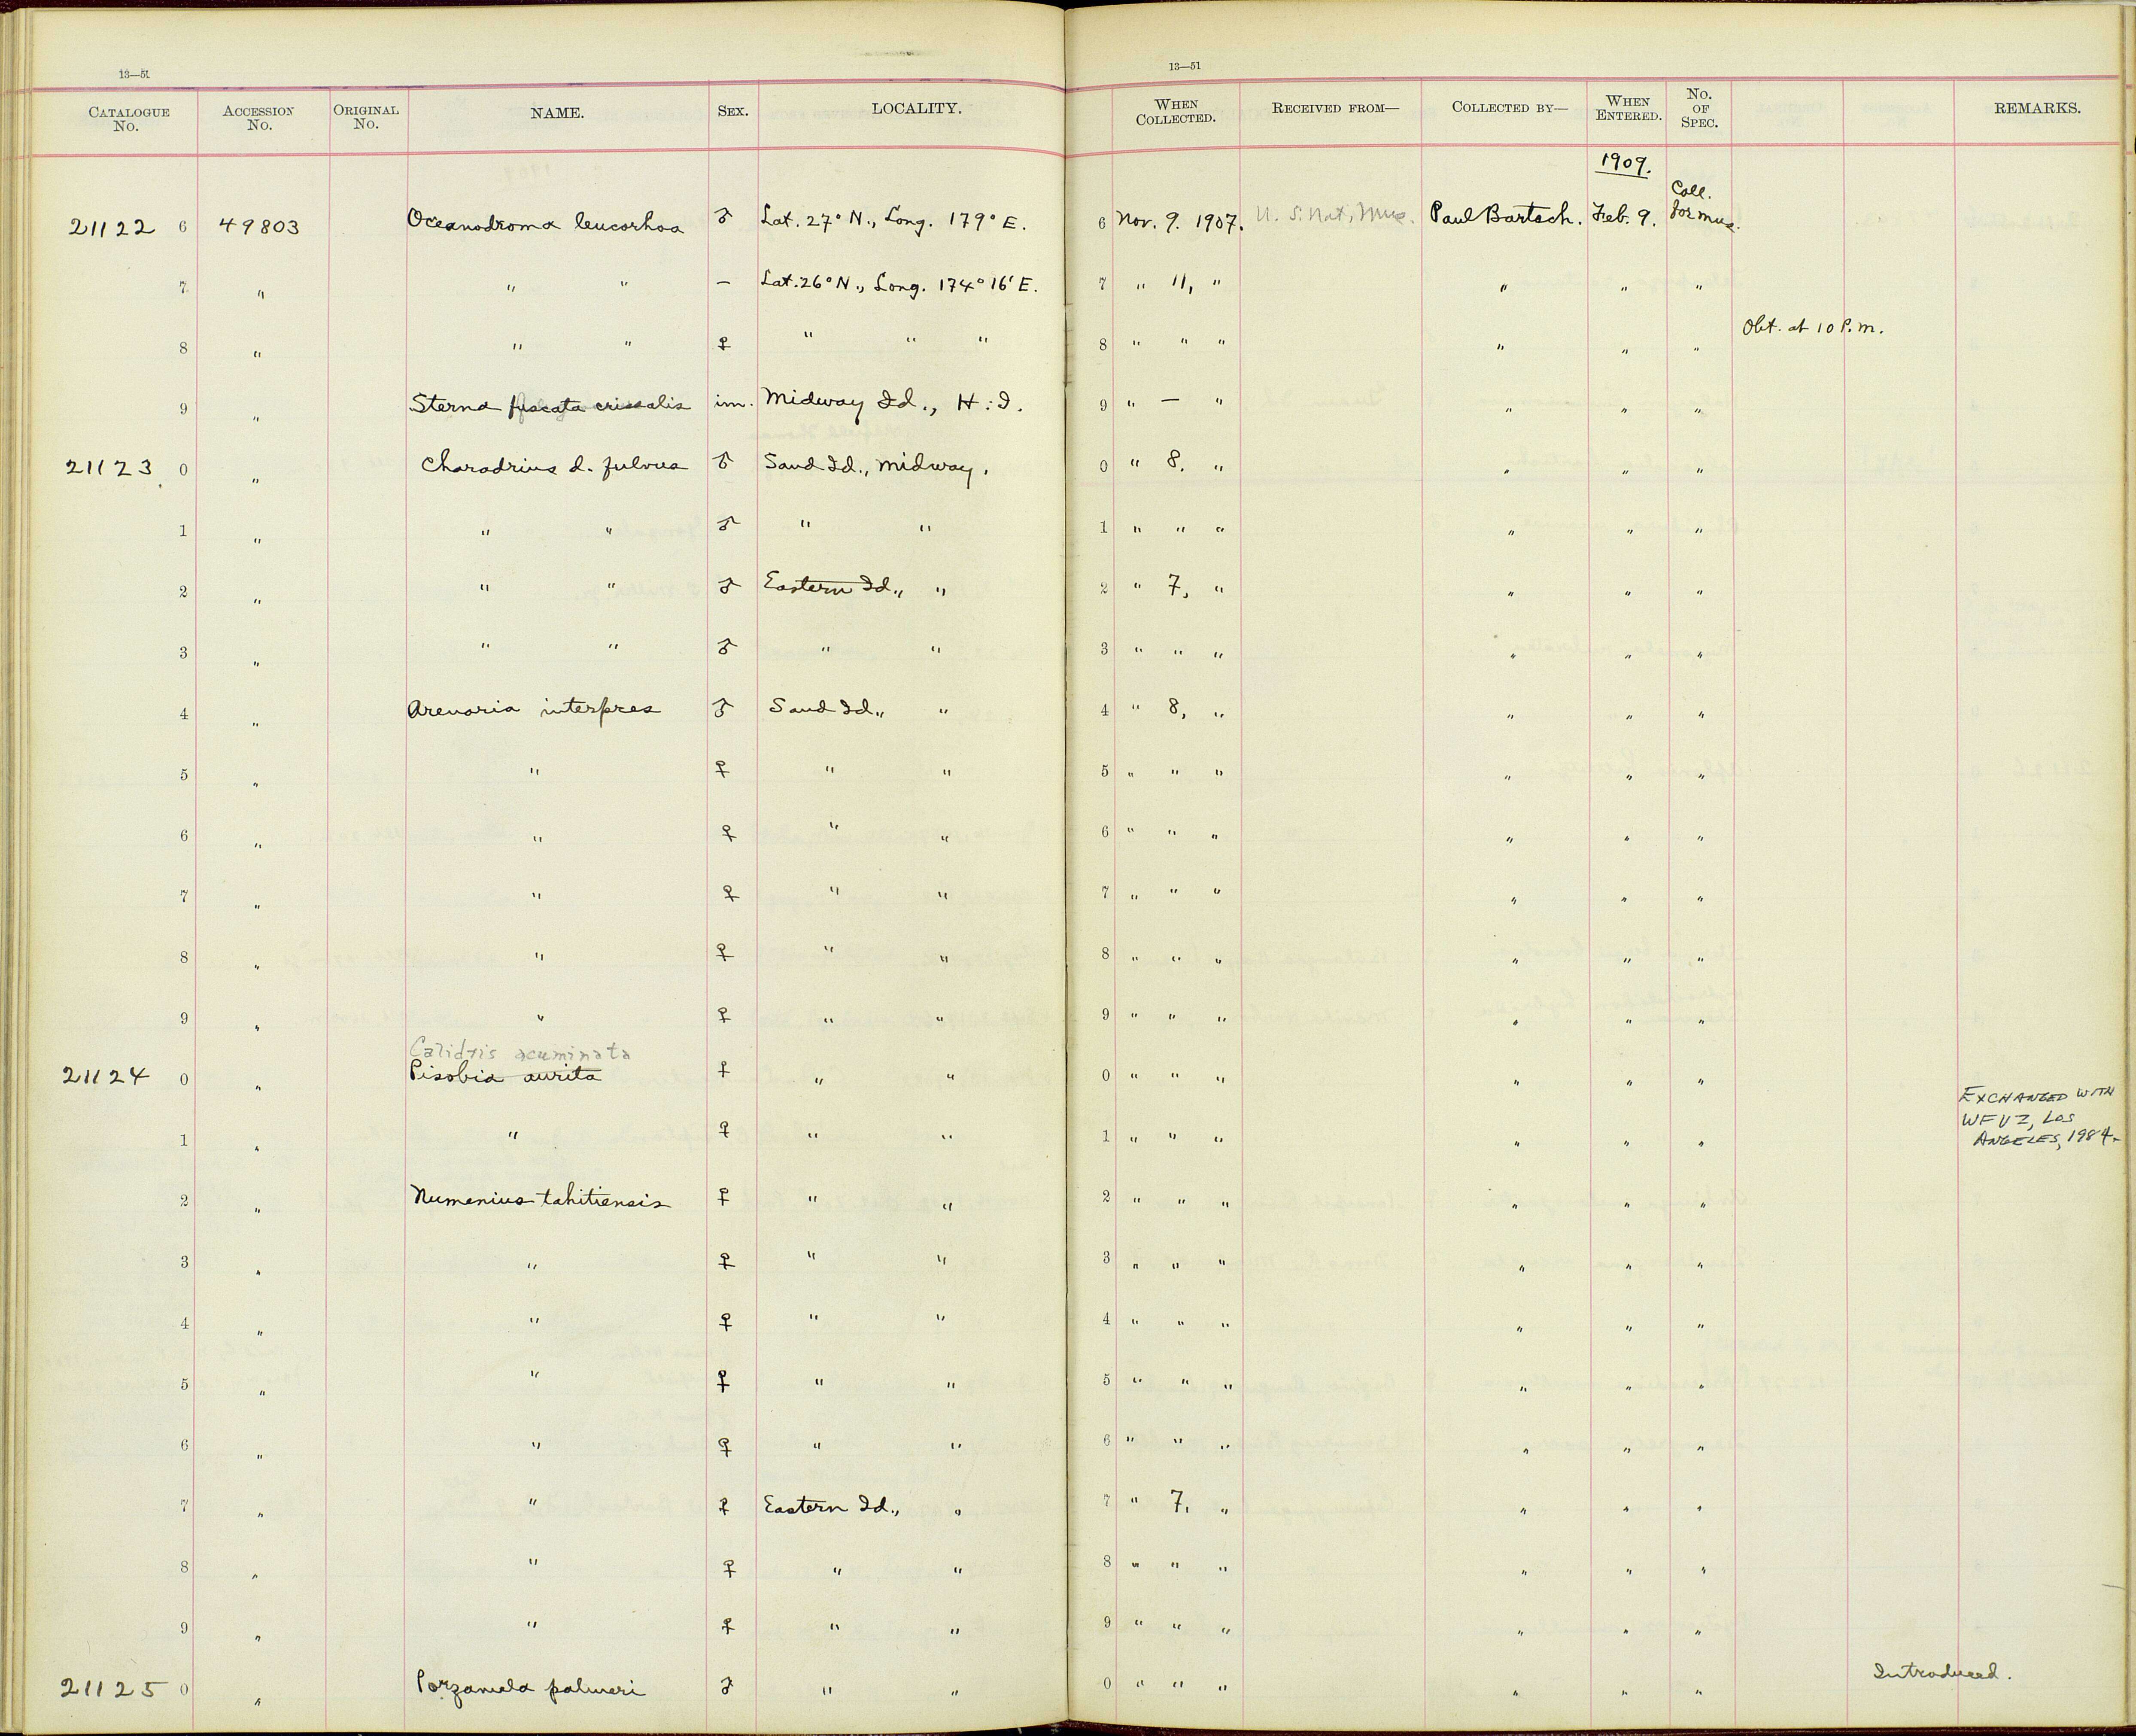 13—51
13—51
CATALOGUE No. ACCESSION No. ORIGINAL No. NAME. SEX. LOCALITY. WHEN COLLECTED. RECEIVED FROM— COLLECTED BY— WHEN ENTERED. No. OF SPEC. REMARKS.
1909.
21122 6 49803 Oceanodroma leucorhoa ♂ Lat. 27° N., Long. 179° E. 6 Nov. 9. 1907. U. S. Nat. Mus. Paul Bartsch. Feb. 9. Coll. for mus.
7 " " " – Lat. 26° N., Long. 174° 16' E. 7 " 11, " " " "
8 " " " ♀ " " " 8 " " " " " " Obt. at 10 P.m.
9 " Sterna fuscata crissalis im. Midway Id., H. I. 9 " — " " " "
21123 0 " Charadrius d. fulvus ♂ Sand Id., Midway. 0 " 8. " " " "
1 " " " ♂ " " 1 " " " " " "
2 " " " ♂ Eastern Id., " 2 " 7, " " " "
3 " " " ♂ " " 3 " " " " " "
4 " Arenaria interpres ♂ Sand Id., " 4 " 8, " " " "
5 " " ♀ " " 5 " " " " " "
6 " " ♀ " " 6 " " " " " "
7 " " ♀ " " 7 " " " " " "
8 " " ♀ " " 8 " " " " " "
9 " " ♀ " " 9 " " " " " "
Calidris acuminata
21124 0 " Pisobia aurita ♀ " " 0 " " " " " "
1 " " ♀ " " 1 " " " " " " EXCHANGED WITH WFVZ, LOS ANGELES, 1984.
2 " Numenius tahitiensis ♀ " " 2 " " " " " "
3 " " ♀ " " 3 " " " " " "
4 " " ♀ " " 4 " " " " " "
5 " " ♀ " " 5 " " " " " "
6 " " ♀ " " 6 " " " " " "
7 " " ♀ Eastern Id., " 7 " 7, " " " "
8 " " ♀ " " 8 " " " " " "
9 " " ♀ " " 9 " " " " " "
21125 0 " Porzanula palmeri ♂ " " 0 " " " " " " Introduced.